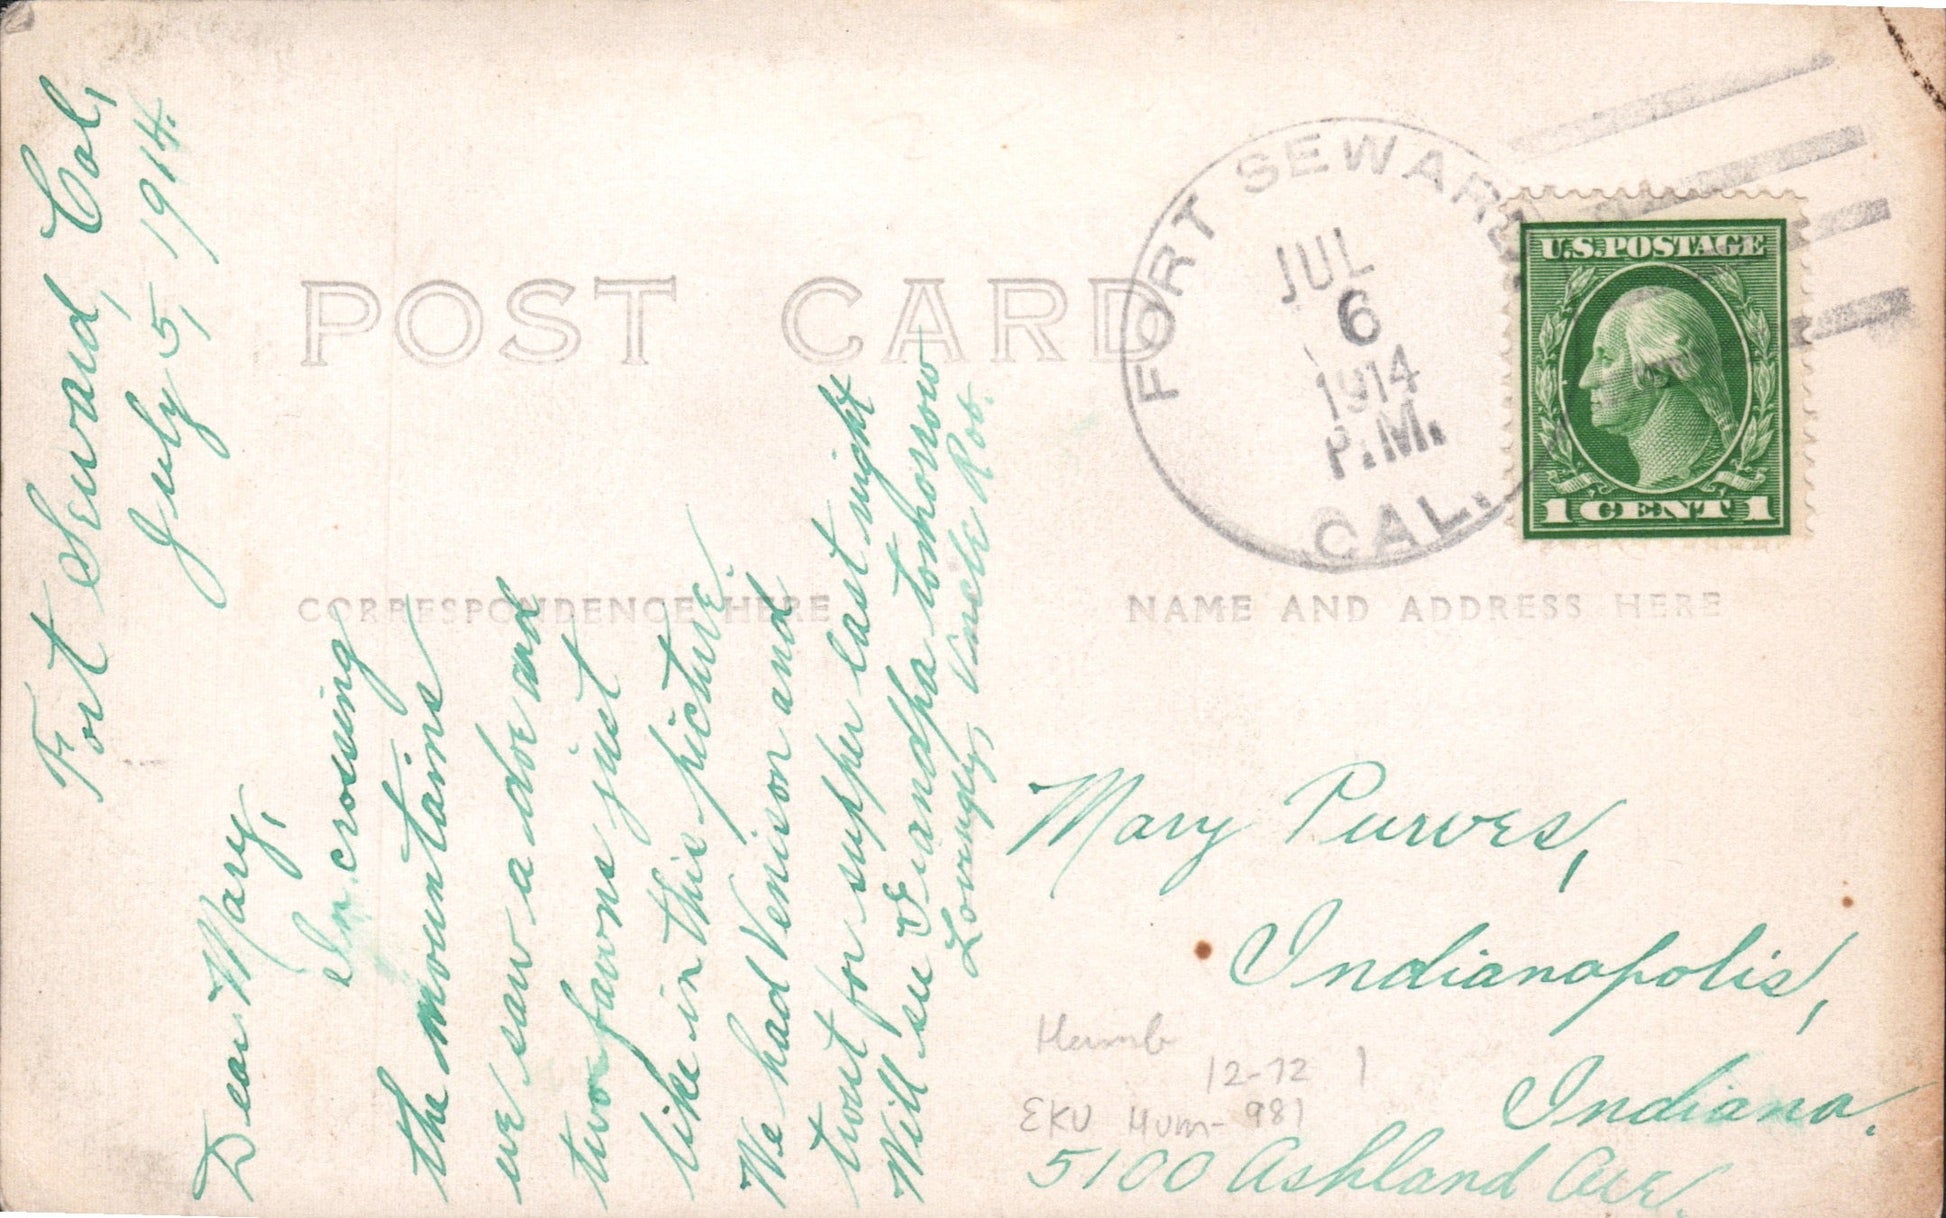 POST CARD
CORRESPONDENCE HERE
NAME AND ADDRESS HERE
FORT SEWARD
JUL
6
1914
P.M.
CAL.
U.S. POSTAGE
1 CENT 1
Fort Seward, Cal,
July 5, 1914.
Dear Mary,
In crossing
the mountains
we saw a doe and
two fawns just
like in this picture.
We had Venison and
trout for supper last night
Will see Grandpa tomorrow
Lovingly, Uncle Rob.
Mary Purves,
Indianapolis,
Indiana.
5100 Ashland Ave.
Humb
12-72 1
EKU Hum- 981